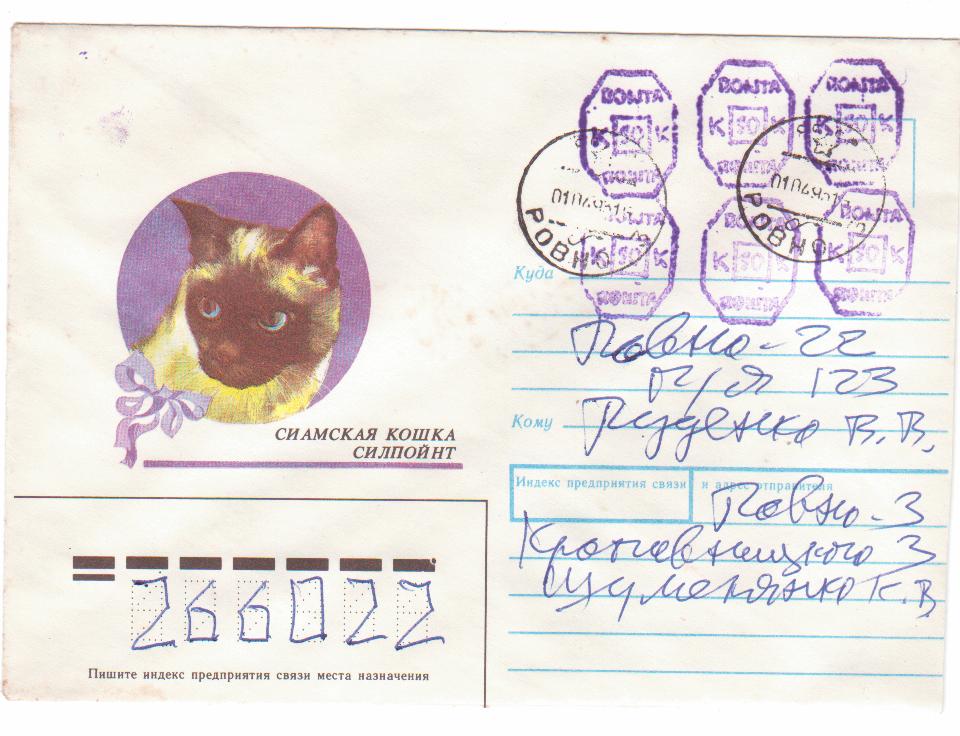 ПОШТА ПОШТА ПОШТА
К 50 К К 50 К К 50 К
ПОШТА ПОШТА ПОШТА
РОВНО РОВНО
ПОШТА ПОШТА ПОШТА
К 50 К К 50 К К 50 К
ПОШТА ПОШТА ПОШТА
Куда
Ровно-22
п/я 123
Кому Руденко В.В.
СИАМСКАЯ КОШКА
СИЛПОЙНТ
Индекс предприятия связи и адрес отправителя
Ровно-3
3
К.В.
266022
Пишите индекс предприятия связи места назначения